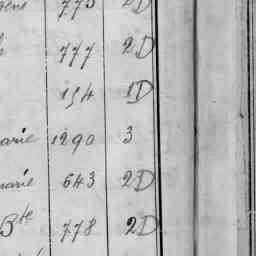 775 2D
777 2D
154 1D
arie 1290 3
marie 643 2D
Bte 778 2D